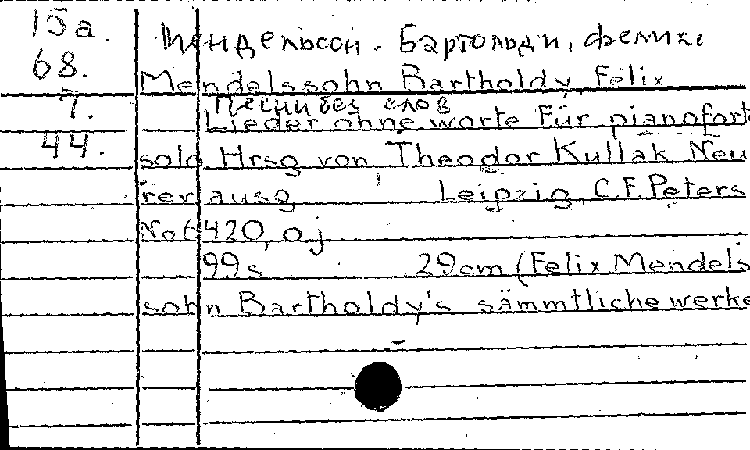 15a.
Мендельсон-Бартольди, Феликс
68.
Mendelssohn Bartholdy, Felix
7.
Песни без слов
Lieder ohne worte Für pianofort
44.
solo Hrsg von Theodor Kullak Neu
rev ausg Leipzig, C.F. Peters
420, oj
99s 29cm (Felix Mendels
sohn Bartholdy's sämmtliche werke